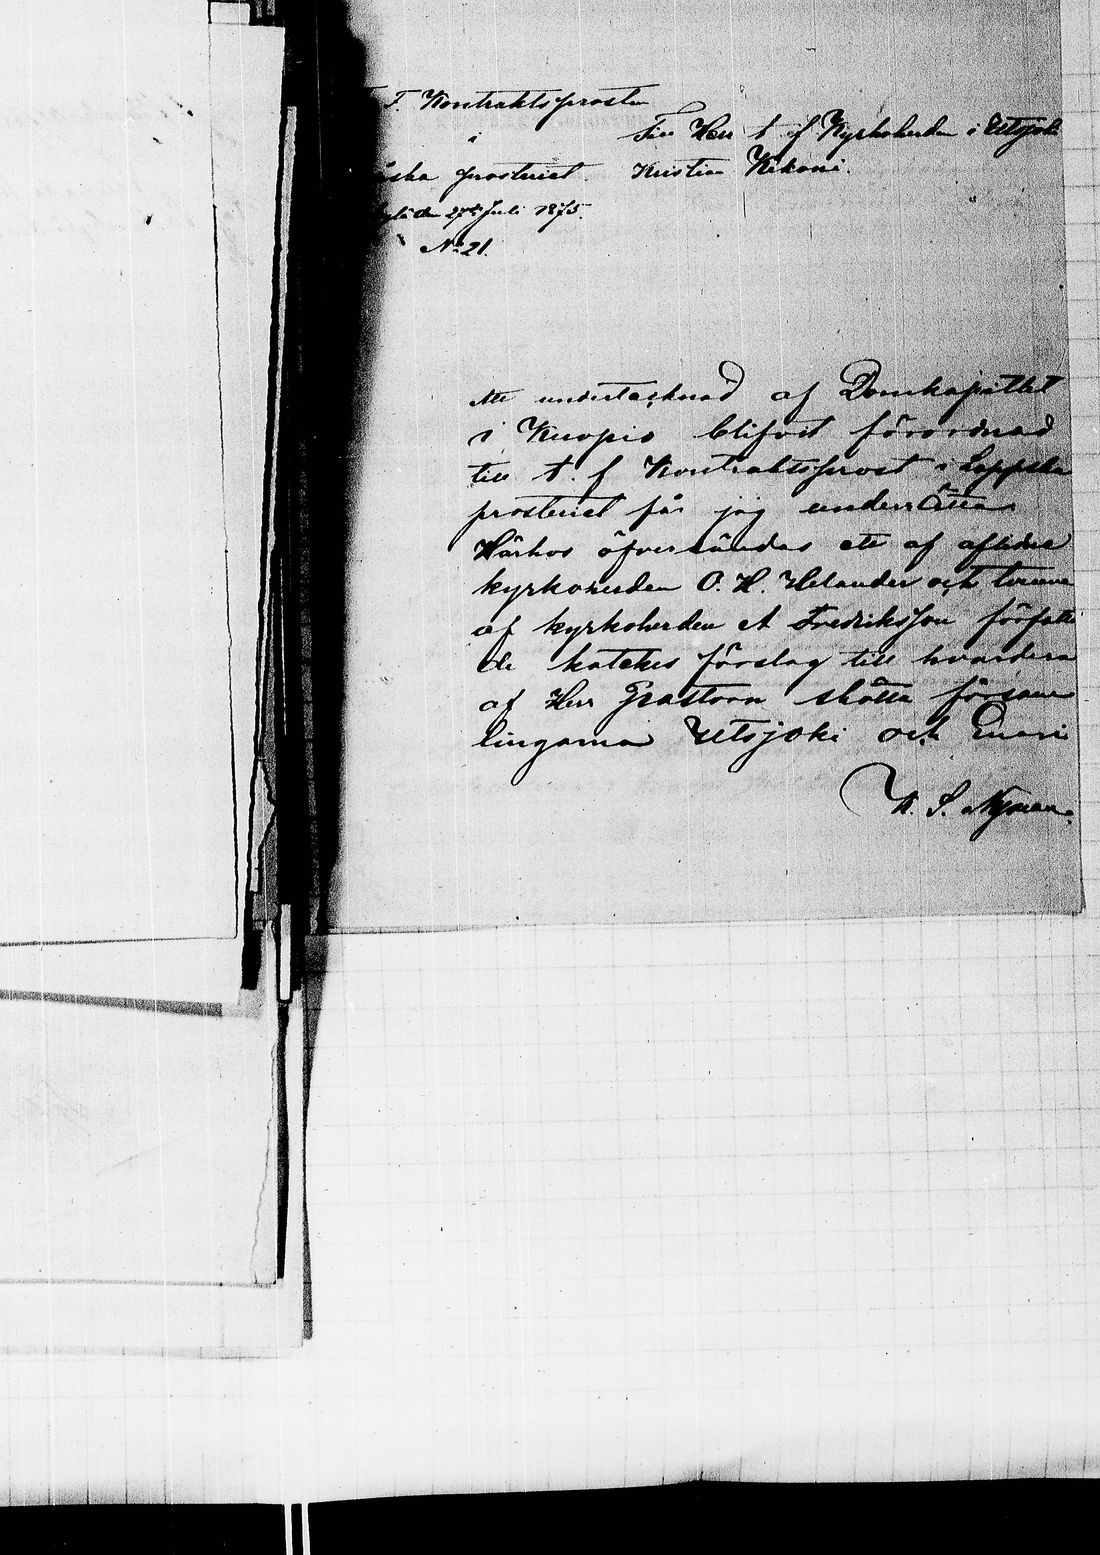 T. F. Kontraktsprosten
i
ska prosteriet.
den 27de Juli 1875.
No 21.
Till Herr t. f Kyrkoherden i Utsjoki
Kristian
Att undertecknad af Domkapitlet
i Kuopio blifvit förordnad
till t. f Kontraktsprost i Lappska
prosteriet får jag underrätta
Härhos öfversändas ett af aflidne
kyrkoherden O. H. Helander och tvenne
af kyrkoherden A Fredriksson författa
de kateches förslag till hvardera
af Herr Pastorn skötta försam
lingarna Utsjoki och Enari
Nyman.